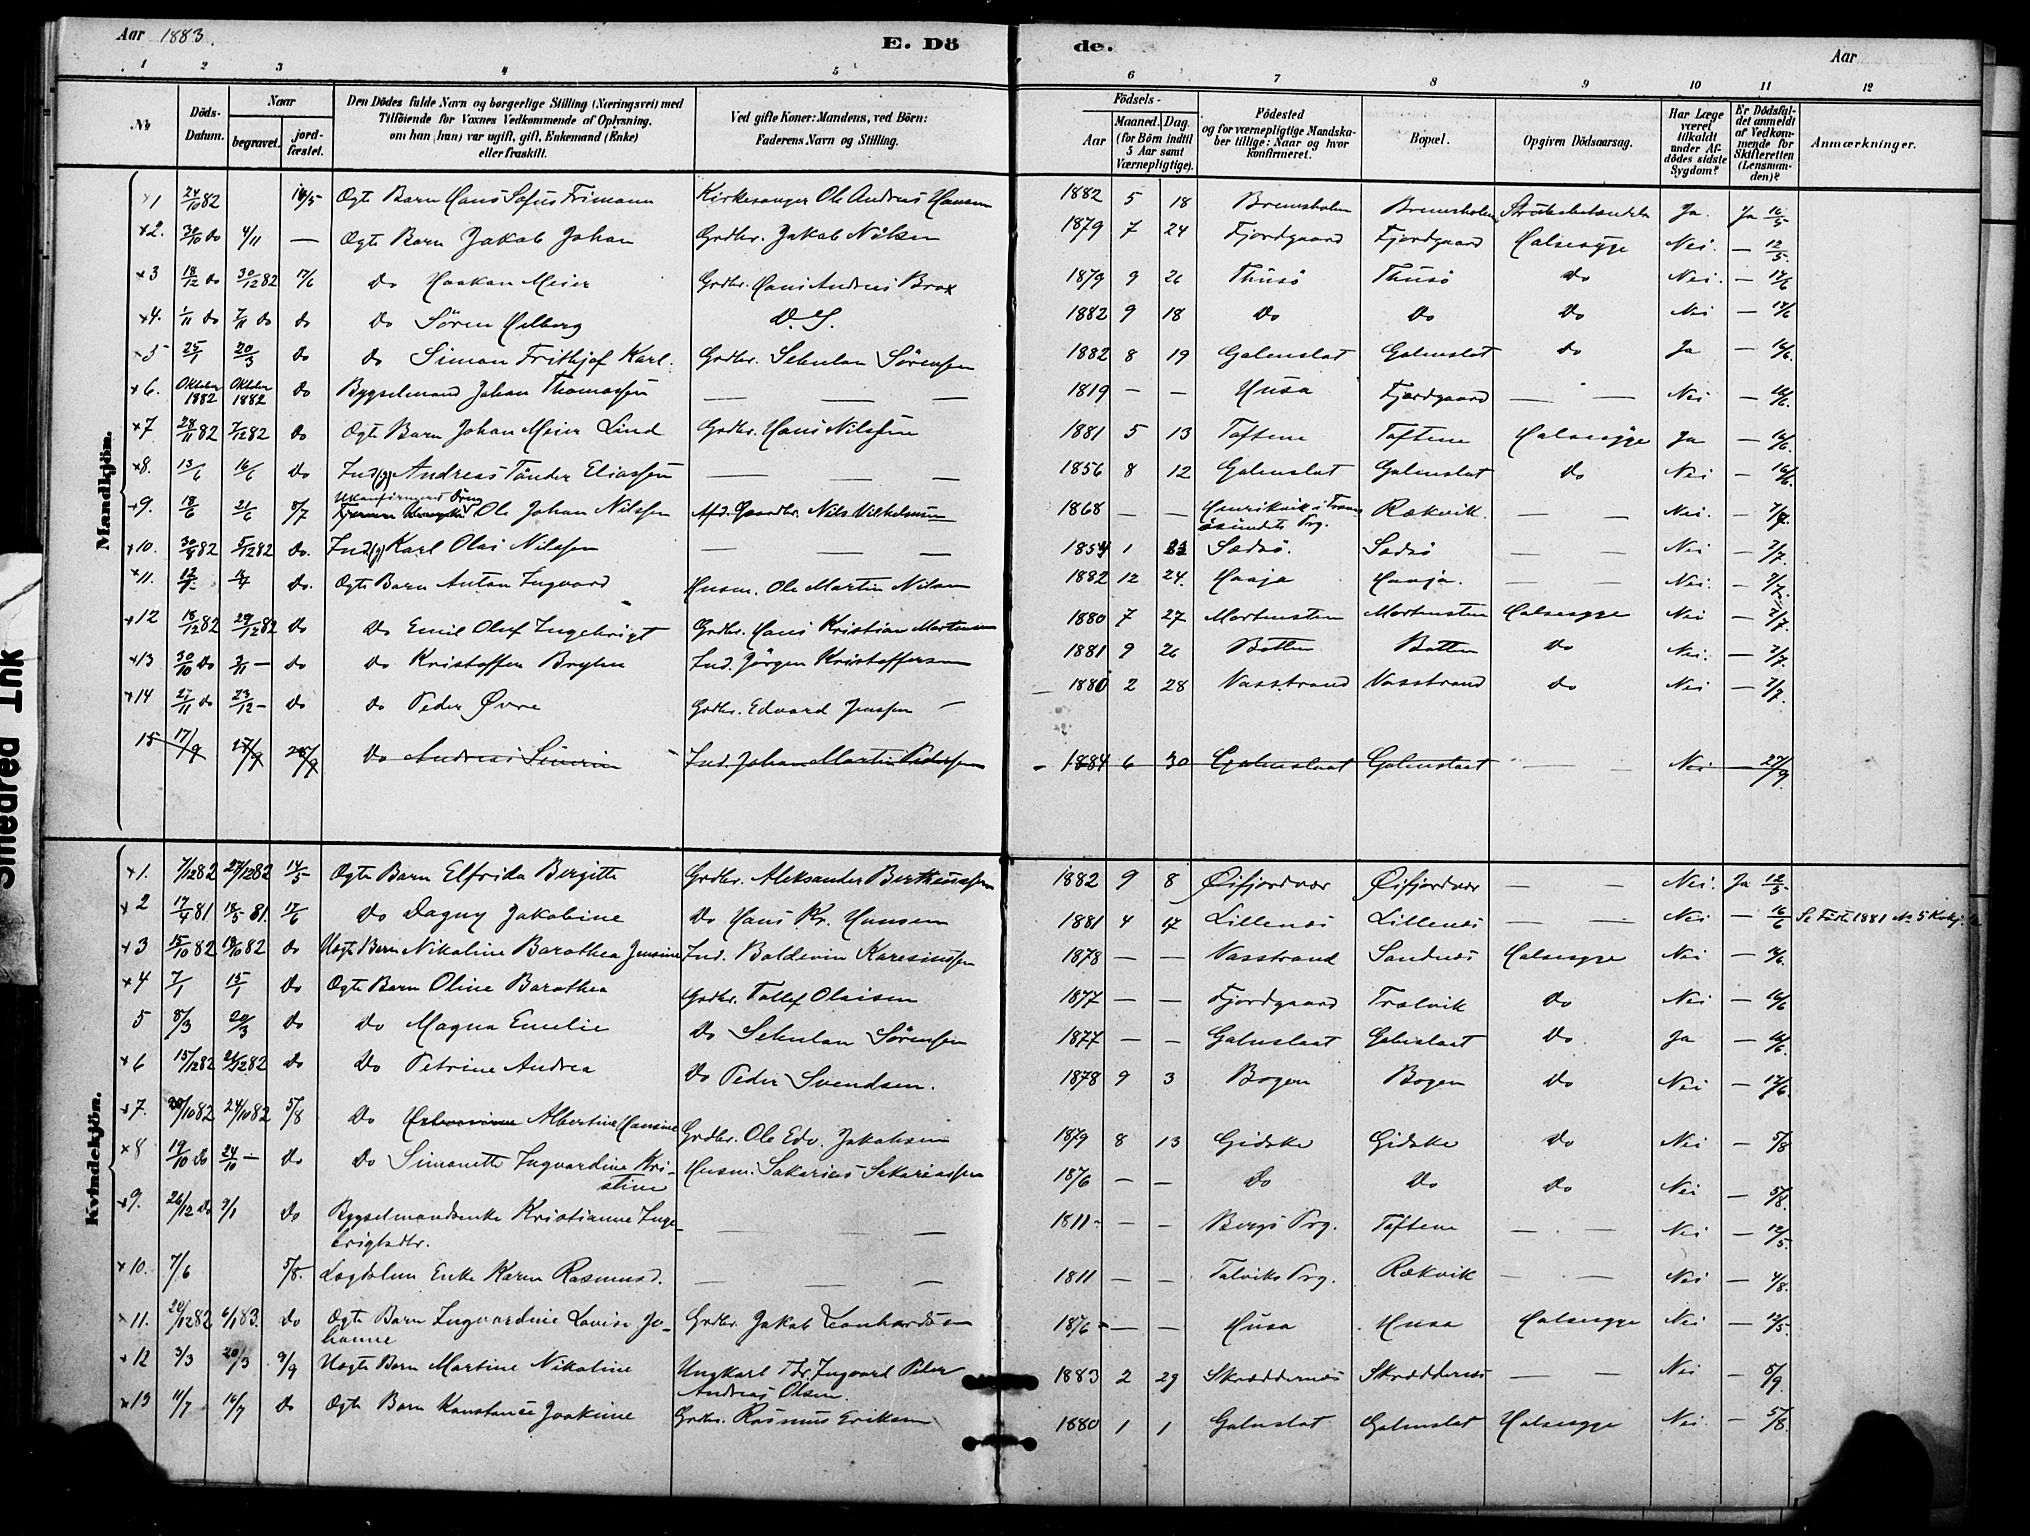 Aar 1883. E. Dö de. Aar
1 2 3 4 5 6 7 8 9 10 11 12
No Döds-Datum. Naar begravet. jord-fæstet. Den Dödes fulde Navn og borgerlige Stilling (Næringsvei) med Tilföiende for Voxnes Vedkommende af Oplysning, om han (hun) var ugift, gift, Enkemand (Enke) eller fraskilt. Ved gifte Koner: Mandens, ved Börn: Faderens Navn og Stilling. Födsels- Aar Maaned. Dag. (for Börn indtil 5 Aar samt Værnepligtige). Födested og for værnepligtige Mandskaber tillige: Naar og hvor konfirmeret. Bopæl. Opgiven Dödsaarsag. Har Læge været tilkaldt under Afdödes sidste Sygdom? Er Dödsfaldet anmeldt af Vedkommende for Skifteretten (Lensmanden)? Anmærkninger.
Mandkjön.
×1 24/10 82 Ogte Barn Hans Sofus Frimann Kirkesanger Ole Andreas Hansen 1882 5 18 Bremsholm Bremsholm Ja. Ja 16/5
×2. 4/11 — Ogte Barn Jakob Johan Grdbr. Jakob Nilsen 1879 7 24 Fjordgaard Fjordgaard Halsesyge Nei. — 12/5
×3 18/12 do 30/12 82 17/6 Do Haakan Meier Grdbr. Hans Andreas Brox 1879 9 26 Thusö Thusö Do Nei. — 17/6
×4. 1/11 do 7/11 do do Do Sören Helberg D. S. 1882 9 18 Do Do Do Nei — 17/6
×5 25/1 20/3 do do Simon Frithjof Karl. Grdbr. Sörensen 1882 8 19 Galnslat Galnslat do Ja — 16/6
×6. Oktober 1882 Oktober 1882 do Bygselmand Johan Thomassen — — — 1819 — — Husa Fjordgaard — — Nei — 16/6.
×7 28/11 82 7/12 82 do Ogte Barn Johan Meier Lind Grdbr. Hans Nilssen 1881 5 13 Töftene Töftene Halsesyge Ja — 16/6
×8. 13/6 16/6 Do Ind(g) Andreas Tönder Eliassen — — 1856 8 12 Galnslat Galnslat do Nei — 16/6.
×9. 18/6 21/6 8/7 Ukonfirmeret Dreng Ole Johan Nilssen Afd. Nils Vilhelmsen 1868 — — Rækvik. — — Nei. — 7/7.
×10. 30/8 82 5/12 82 do. Ind(g) Karl Olai Nilssen — — — 1854 1 Sædsö. Sædsö — — Nei — 7/7.
×11. do. Ogte Barn Anton Ingvard Husm. Ole Martin Nilsen 1882 12 24. Haaja Haaja. — — Nei. — 7/7.
×12 18/12 82 29/12 82 do Do Emil Oluf Ingebrigt Grdbr. Hans Kristian Martensen 1880 7 27 Mortensten Mortensten Halsesyge Nei — 7/7.
×13 30/10 Do do Do Kristoffer Ind. Jörgen Kristoffersen 1881 9 26 Botten Botten Do Nei. — 7/7.
×14 27/11 do 23/12 — do do Peder Øvre Grdbr. Edvard Jenssen 1880 2 28 Vasstrand Vasstrand do Nei — 7/7.
15 17/9 27/9 28/9 Do Andreas Ind. Johan Martin Pedersen 1884 6 30 Galnslaat Galnslaat — — Nei — 27/9
Kvindekjön.
×1. 7/12 82 27/12 82 14/5 Ogte Barn Elfrida Bergitte Grdbr. Aleksander Bertheussen 1882 9 8 Öifjordvær Öifjordvær — — Nei. Ja 12/5.
×2 17/4 81 18/5 81. 17/6 Do Dagny Jakobine Do Hans Kr. Hansen 1881 4 17 Lillenæs Lillenæs — — Nei — 16/6 Se Födte 1881 No 5
×3 15/10 82 18/10 82 do Uægte Barn Nikoline Barothea Jensine Ind. Boldevin Karesiussen 1878 — — Vasstrand Sandnæs Halsesyge Nei — 16/6.
×4 7/1 15/1 Do Ogte Barn Oline Barothea Grdbr. Tollef Olaisen 1877 — — Fjordgaard Trælvik Do Nei — 16/6
5 8/3 20/3 do do Magna Emelie Do Sörensen 1877 — — Galnslaat Galnslaat Do. Ja — 16/6.
×6 15/12 82 24/12 82 do Do Petrine Andrea Do Peder Svendsen. 1878 9 3 Bogen Bogen Do Nei — 17/6.
×7. 20/10 82 24/10 82 5/8 Do Albertine Hansine Grdbr. Ole Edv. Jakobsen 1879 8 13 Gidske Gidske Do Nei — 5/8
×8 19/10 do 24/10 — do Do Simonette Ingvardine Kri-stine Husm. Sakarias Sakariassen 1876 — — Do Do Do Nei — 5/8.
×9. 26/12 Do 9/1 Do Bygselmandsenke Kristianne Inge-brigtsdtr. — — — 1811 — — Bergs Prg. Töftene — — Nei — 12/5.
×10. 7/6 5/8. Lægdslem Enke Karen Rasmusd. — — — 1811 — — Talviks Prg. Rækvik — — Nei — 4/8.
×11. 6/1 83. do Ogte Barn Ingvardine Lovise Jo-hanne Grdbr. Jakob Leonhardsen 1876 — — Husa Husa Halsesyge Nei — 12/5.
×12 3/3 20/3 9/9 Uægte Barn Martine Nikoline Ungkarl Ingvart Peter Andreas Olsen. 1883 2 29 Skreddernæs Skreddernæs — — Nei — 5/9.
×13 11/7 16/7 Do Ogte Barn Konstanse Joakime Grdbr. Rasmus Eriksen 1880 1 1 Galnslat Galnslat Halsesyge Nei. — 5/8.
Smedred Tuk